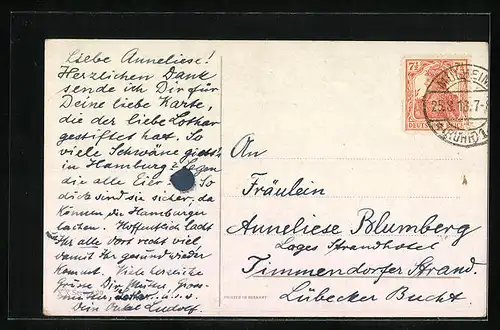 Liebe Anneliese!
Herzlichen Dank
sende ich Dir für
Deine liebe Karte,
die der liebe Lothar
gestiftet hat. So
viele Schwäne giebt's
in Hamburg? Legen
die alle Eier So
dick sind sie sicher, da
können die Hamburger
lachen. Hoffentlich lacht
Ihr alle dort recht viel,
damit Ihr gesund wieder
kommt. Viele herzliche
Grüsse Dir, Mutter, Gross-
mutter, Lothar u.s.w.
Dein Onkel Ludolf.
7½
MÜLHEIM
25.8.18.7-8
(RUHR) 1
An
Fräulein
Anneliese Blumberg
Lages Strandhotel
Timmendorfer Strand.
Lübecker Bucht.
PRINTED IN GERMANY